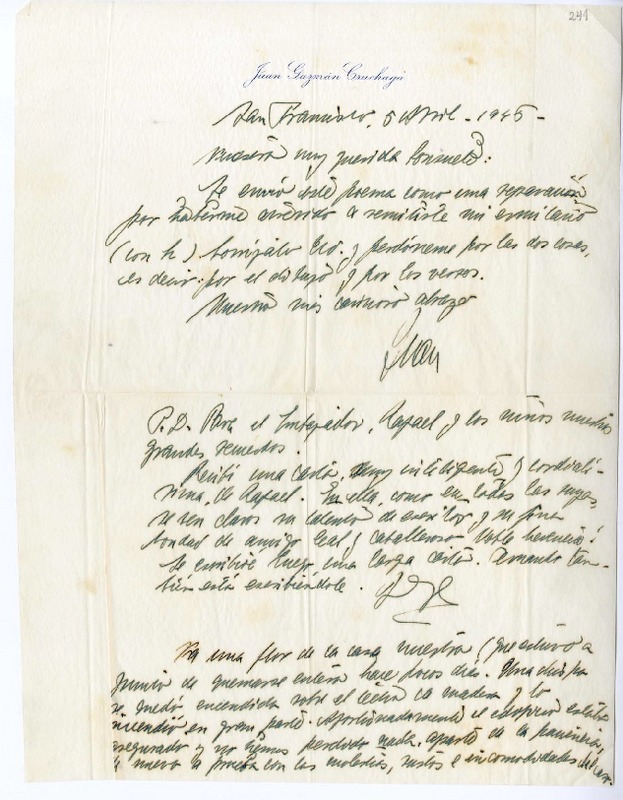 241
Juan Guzmán Cruchaga
San Francisco, 5 Abril - 1945 -
Nuestra muy querida Consuelo:
Te envío este poema como una reparación
por haberme atrevido a remitirte mi ermitaño
(con h) Gonzalo y perdóneme por las dos cosas,
es decir: por el dibujo y por los versos.
Nuestro más cariñoso abrazo
Juan
P.D. Para el Embajador, Rafael y los niños nuestros
grandes recuerdos.
Recibí una carta, muy inteligente y cordialí-
sima, de Rafael. En ella, como en todas las suyas,
se ven claros su talento de escritor y su fina
bondad de amigo leal y caballeroso. Noble herencia!
Le escribiré luego una larga carta. Armando tam-
bién está escribiéndole.
Va una flor de la casa nuestra (que estuvo a
punto de quemarse entera hace pocos días. Una chispa
se quedó encendida sobre el techo de madera y lo
incendió en gran parte. Afortunadamente el edificio estaba
asegurado y no hemos perdido nada, aparte de la paciencia,
a prueba con las molestias, sustos e incomodidades del